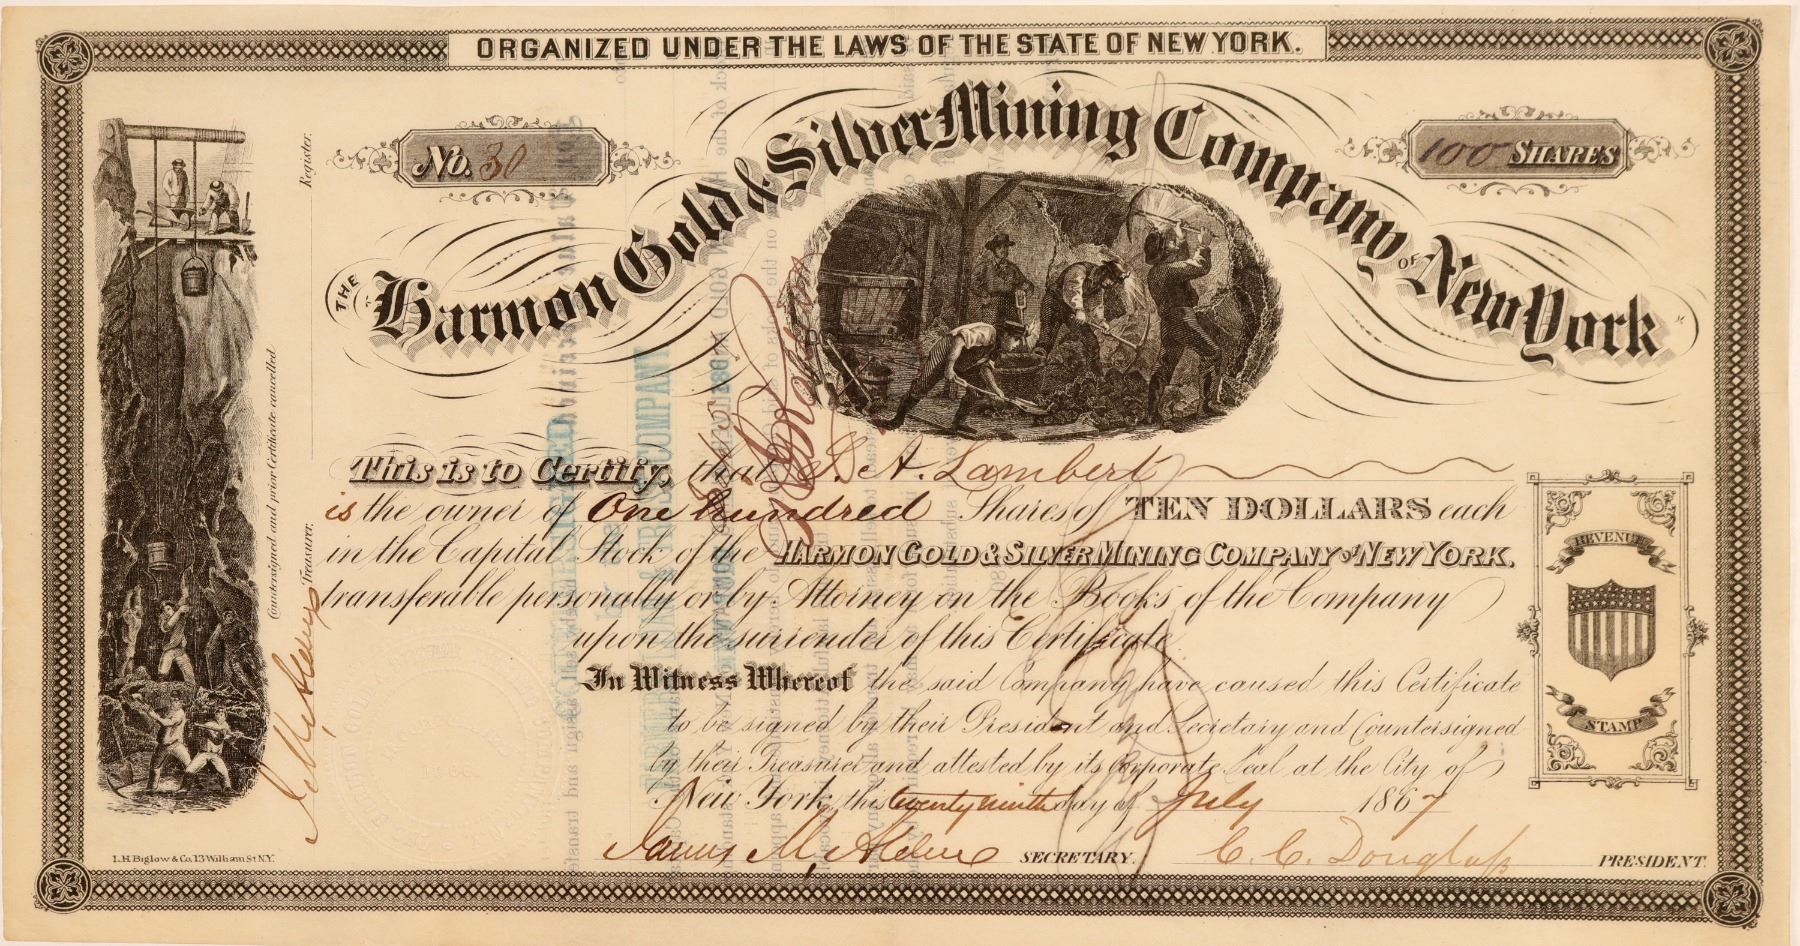 ORGANIZED UNDER THE LAWS OF THE STATE OF NEW YORK.
No. 30
100 SHARES
THE Harmon Gold & Silver Mining Company OF New York
Register.
Countersigned and prior Certificate cancelled
Treasurer.
This is to Certify, that A. Lambert
is the owner of One hundred Shares of TEN DOLLARS each
in the Capital Stock of the HARMON GOLD & SILVER MINING COMPANY OF NEW YORK.
transferable personally or by Attorney on the Books of the Company
upon the surrender of this Certificate.
In Witness Whereof the said Company have caused this Certificate
to be signed by their President and Secretary and Countersigned
by their Treasurer and attested by its Corporate Seal at the City of
New York, this twenty ninth day of July 1867
SECRETARY.
C. C. Douglass PRESIDENT.
REVENUE
STAMP
L.H. Biglow & Co. 13 William St N.Y.